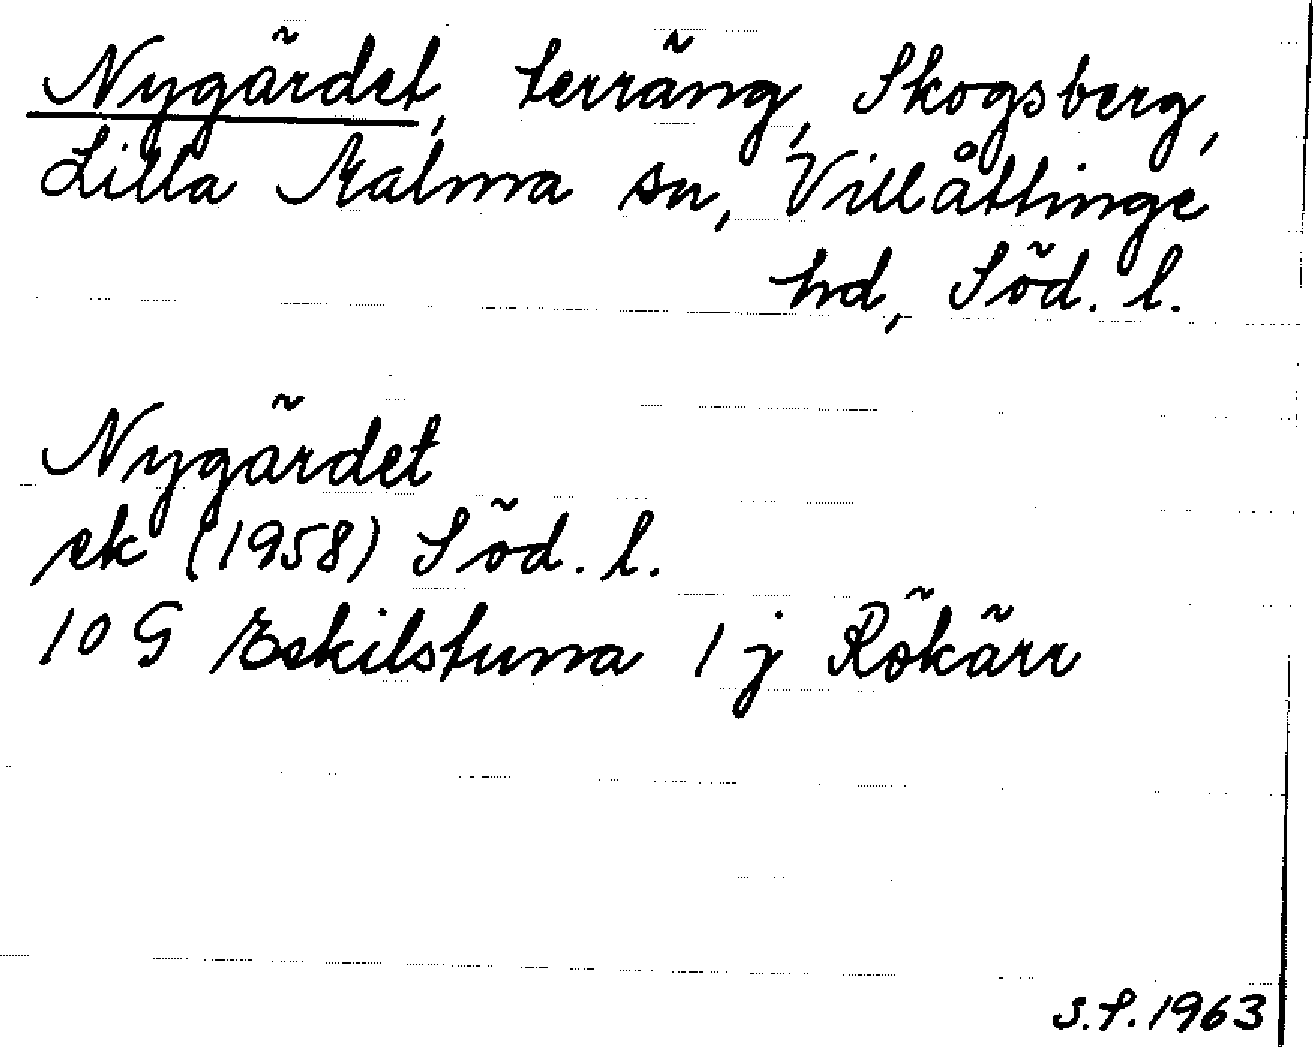 Nygärdet, terräng, Skogsberg,
Lilla Malma sn, Villåttinge
hd, Söd. l.
Nygärdet
ek (1958) Söd. l.
10 G Eskilstuna 1 j Rökärr
S.S. 1963